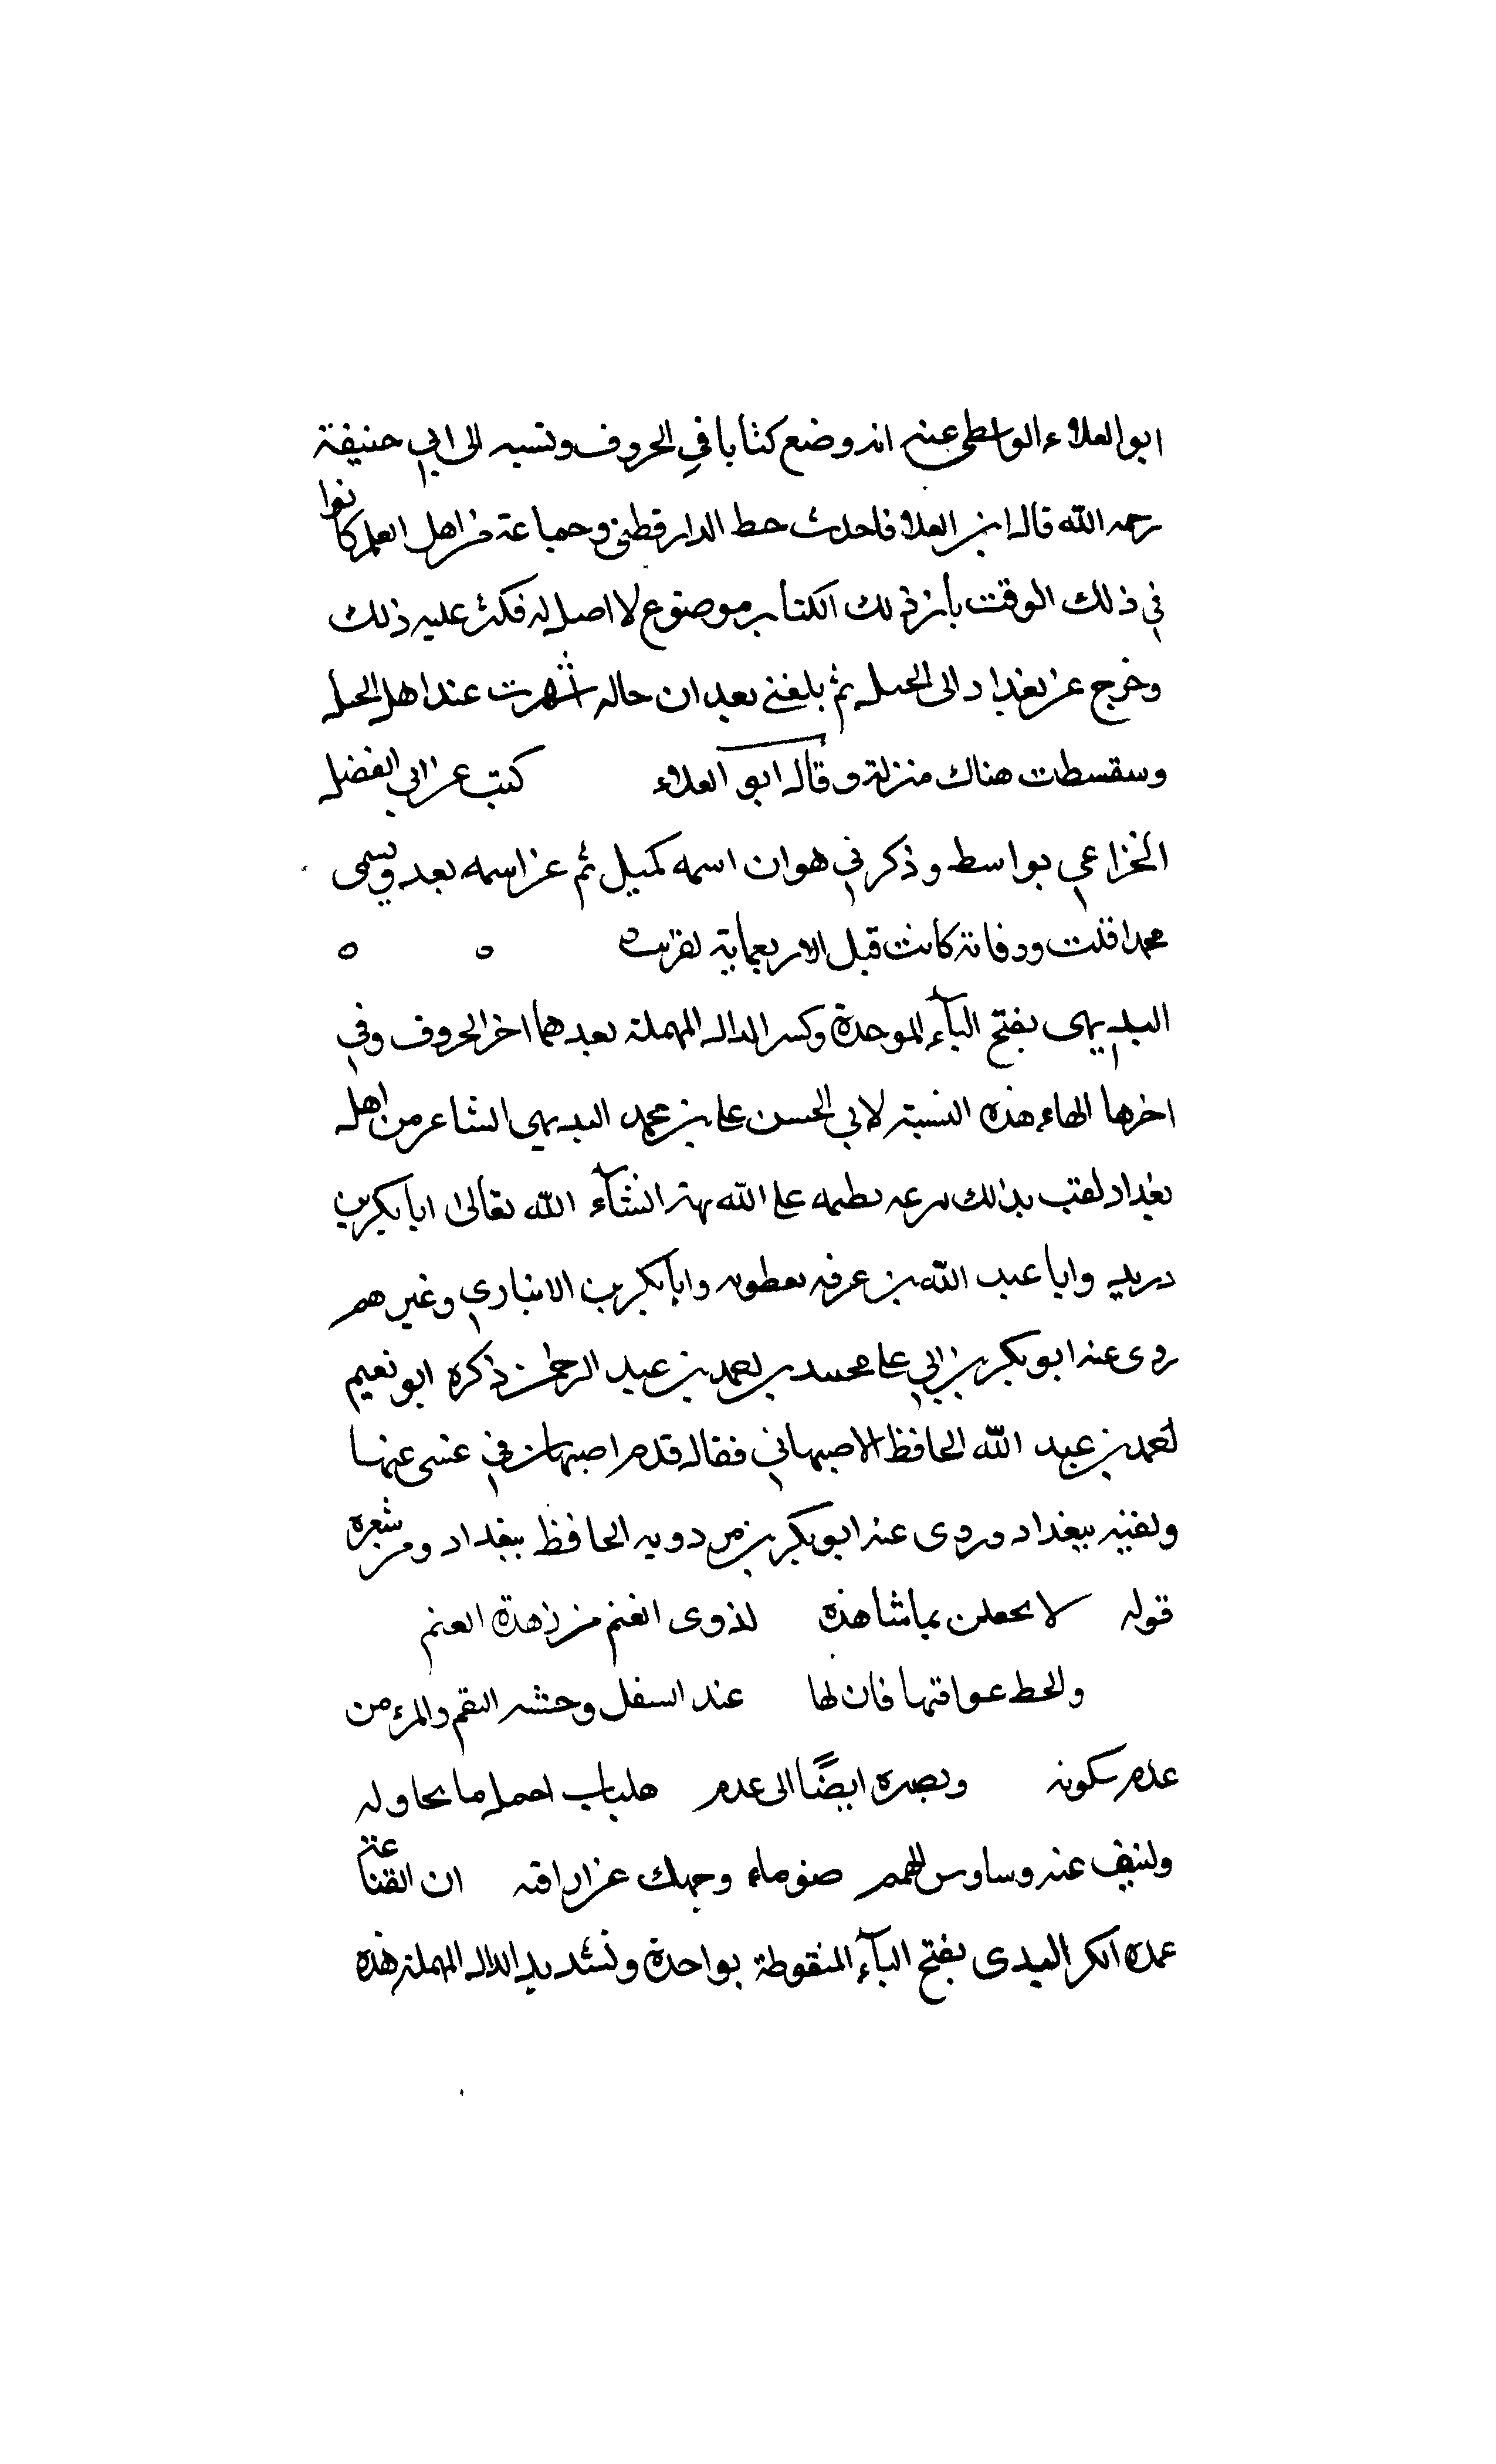 ابو العلاء الواسطي عنه انه وضع كتابا في الحروف ونسبه الى ابي حنيفة
رحمه الله قال ابن العلا فاحدث حط الدارقطني وجماعة من اهل العلم كانوا
في ذلك الوقت بان ذلك الكتاب موضوع لا اصل له فكثر عليه ذلك
وخرج عن بغداد الى الجبل ثم بلغني بعد ان حاله اشتهرت عند اهل الجبل
وسقطت هناك منزلة وقال ابو العلاء كتبت عن ابي الفضل
الخزاعي بواسط وذكر في هو ان اسمه كميل ثم غير اسمه بعد وتسمى
محمدا قلت ووفاته كانت قبل الاربعماية
البديهى بفتح الباء الموحدة وكسر الدال المهملة بعدهما اخر الحروف وفي
اخرها الهاء هذه النسبة لابي الحسن علي بن محمد البديهي الشاعر من اهل
بغداد لقب بذلك نظمه الله تعالى ابا بكر بن
دريد وابا عبد الله بن عرفه نفطويه وابا بكر بن الانباري وغيرهم
روى عنه ابو بكر بن ابي علي محمد بن احمد بن عبد الرحمن ذكره ابو نعيم
احمد بن عبد الله الحافظ الاصبهاني فقال قدم اصبهان في
ولقيته ببغداد وروى عنه ابو بكر بن مردويه الحافظ ببغداد ومن شعره
قوله لا لذوى الغنم من زهدة الغنم
والحط عواقبها فان لها عند السفل وحشه النقم والمرء من
عدم سكونه وبصره ايضًا الى عدم ما يحاوله
ولينف عنه وساوس الهمم صن ماء وجهك عن اراقته ان القناعة
عمدة الكرم البدى بفتح الباء المنقوطة بواحدة وتشديد الدال المهملة هذه